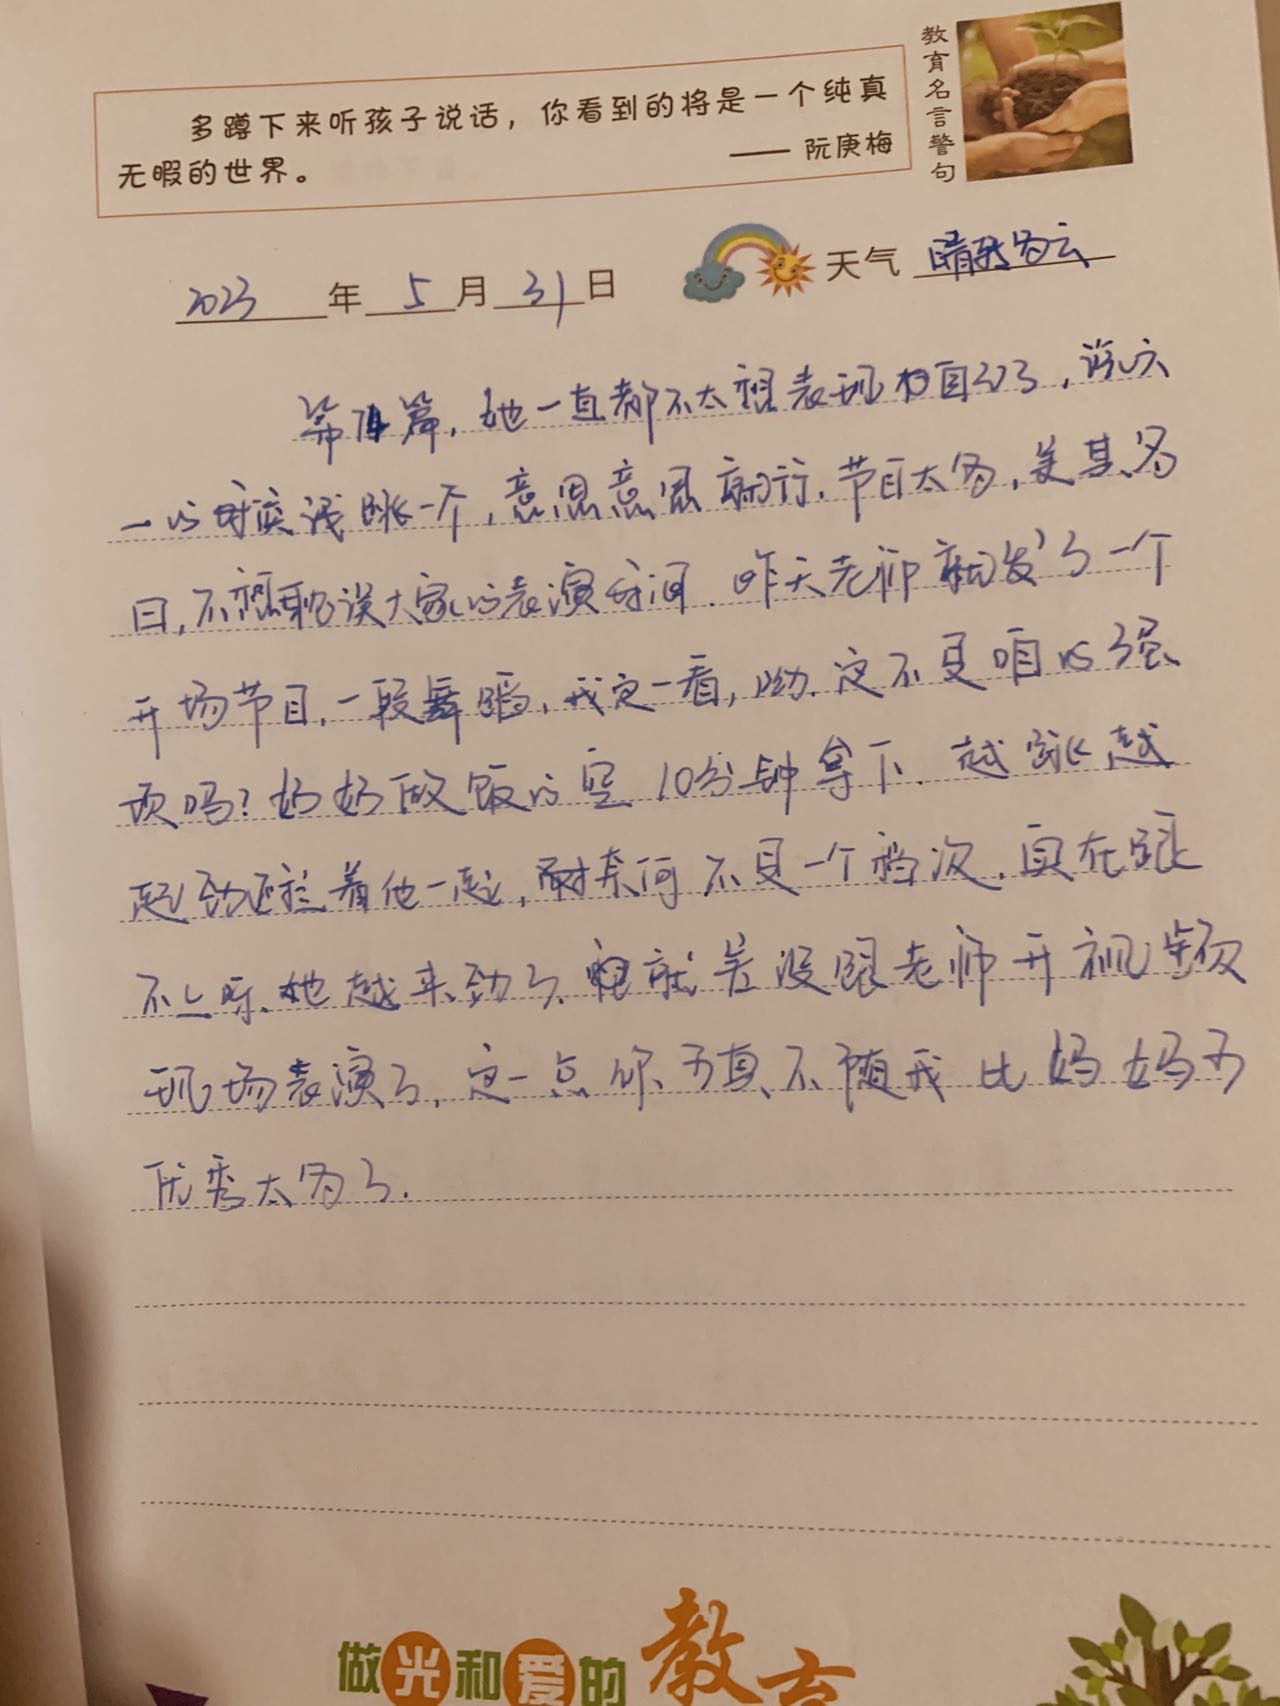 多蹲下来听孩子说话，你看到的将是一个纯真
无暇的世界。
—— 阮庚梅
教育名言警句
2023 年 5 月 31 日 天气 晴转多云
第71篇，她一直都不太想表现自己了，说六
一的时候浅跳一个，意思意思就行，节目太多，美其名
曰，不想耽误大家的表演时间。昨天老师就发了一个
开场节目，一段舞蹈，我定一看，呦，这不是咱的强
项吗？妈妈做饭的空10分钟拿下，越跳越
起劲还拦着他一起，耐奈何不是一个档次，实在跟
不上呀，她越来劲了，就差没跟老师开视频
现场表演了，这一点你可真不随我比妈妈可
优秀太多了。
做光和爱的教育